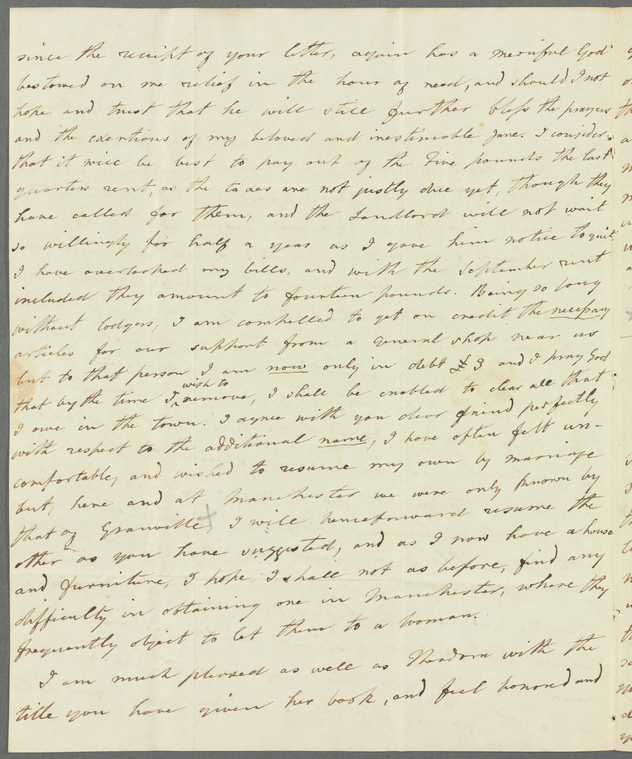 since the receipt of your letter, again has a merciful God
bestowed on me relief in the hour of need, and should I not
hope and trust that he will still further bless the prayers
and the exertions of my beloved and inestimable Jane. I consider
that it will be best to pay out of the Five pounds the last
quarters rent, as the taxes are not justly due yet, though they
have called for them, and the Landlord will not wait
so willingly for half a year as I gave him notice to quit
I have overlooked my bills, and with the September rent
included they amount to fourteen pounds. Being so long
without lodgers, I am compelled to get on credit the necessary
articles for our support from a general shop near us
but to that person I am now only in debt £ 3 and I pray God
that by the time I wish to remove, I shall be enabled to clear all that
I owe in the town. I agree with you dear friend perfectly
with respect to the additional name, I have often felt un-
comfortable, and wished to resume my own by marriage
but, here and at Manchester we were only known by
that of Granville, I will henceforward resume the
other as you have suggested, and as I now have a house
and furniture, I hope I shall not as before, find any
difficulty in obtaining one in Manchester, where they
frequently object to let them to a woman.
I am much pleased as well as Theodora with the
title you have given her book, and feel honored and